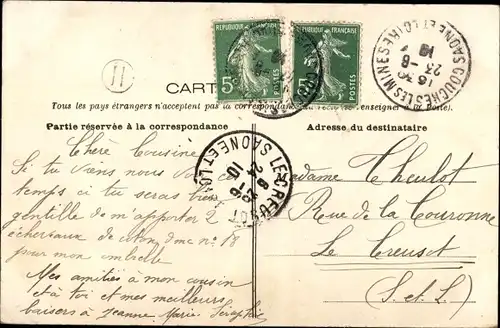 REPUBLIQUE FRANÇAISE
5c
POSTES
REPUBLIQUE FRANÇAISE
5c
POSTES
COUCHES LES MINES SAONE ET LOIRE
16 30
23-8
10
11
CART
Tous les pays étrangers n'acceptent pas la correspondance au recto (se renseigner à la Poste).
Partie réservée à la correspondance
Adresse du destinataire
LE CREUSOT SAONE ET LOIRE
24 8
10
Chère Cousine
Si tu viens nous voir ces
temps ci tu serais bien
gentille de m'apporter 2
écheveaux de coton dmc no 18
pour mon
Mes amitiés à mon cousin
et à toi et mes meilleurs
baisers à Jeanne Marie. Séraphie
Madame Cheulot
Rue de la Couronne
Le Creusot
(S. et L.)